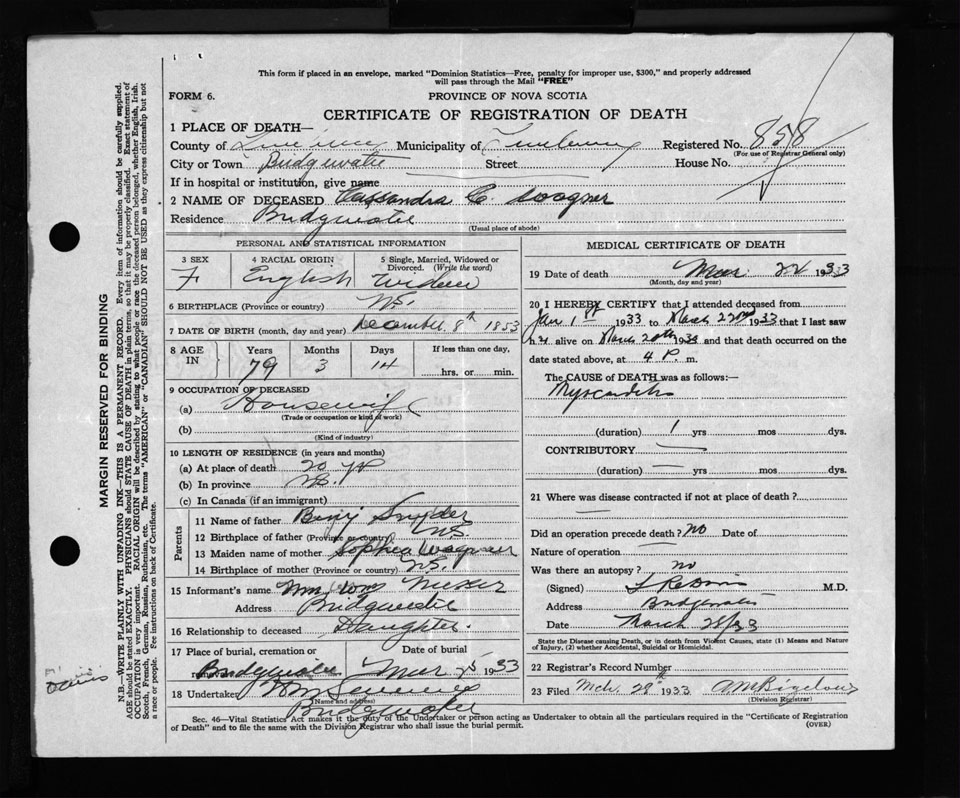 This form if placed in an envelope, marked "Dominion Statistics—Free, penalty for improper use, $300," and properly addressed
will pass through the Mail "FREE"
FORM 6.
PROVINCE OF NOVA SCOTIA
CERTIFICATE OF REGISTRATION OF DEATH
1 PLACE OF DEATH—
County of Municipality of Registered No. 858
(For use of Registrar General only)
City or Town Bridgewater Street House No.
If in hospital or institution, give name
2 NAME OF DECEASED Cassandra C. Wagner
Residence Bridgewater
(Usual place of abode)
PERSONAL AND STATISTICAL INFORMATION
3 SEX 4 RACIAL ORIGIN 5 Single, Married, Widowed or
Divorced. (Write the word)
F English Widow
6 BIRTHPLACE (Province or country) N.S.
7 DATE OF BIRTH (month, day and year) December 8th 1853
8 AGE IN Years Months Days If less than one day,
79 3 14 hrs. or min.
9 OCCUPATION OF DECEASED
(a) Housewife
(Trade or occupation or kind of work)
(b)
(Kind of industry)
10 LENGTH OF RESIDENCE (in years and months)
(a) At place of death 20 yr
(b) In province N.S.
(c) In Canada (if an immigrant)
Parents
11 Name of father Benj Snyder
12 Birthplace of father (Province or country) N.S.
13 Maiden name of mother Sophea Wagner
14 Birthplace of mother (Province or country) N.S.
15 Informant's name Mrs Wm
Address Bridgewater
16 Relationship to deceased Daughter.
17 Place of burial, cremation or Date of burial
removal Bridgewater Mar 25 1933
18 Undertaker
(Name and address)
Bridgewater
MEDICAL CERTIFICATE OF DEATH
19 Date of death Mar 22 1933
(Month, day and year)
20 I HEREBY CERTIFY that I attended deceased from
Jan 1st 1933 to March 22nd 1933 that I last saw
her alive on March 20th 1933 and that death occurred on the
date stated above, at 4 P. m.
The CAUSE of DEATH was as follows:—
Myocarditis
(duration) 1 yrs mos dys.
CONTRIBUTORY
(duration) — yrs mos dys.
21 Where was disease contracted if not at place of death?
—
Did an operation precede death? no Date of
Nature of operation —
Was there an autopsy? no
(Signed) M.D.
Address Bridgewater
Date March 28/33
State the Disease causing Death, or in death from Violent Causes, state (1) Means and Nature
of Injury, (2) whether Accidental, Suicidal or Homicidal.
22 Registrar's Record Number
23 Filed Mch. 28th 1933 A M Bigelow
(Division Registrar)
Sec. 46—Vital Statistics Act makes it the duty of the Undertaker or person acting as Undertaker to obtain all the particulars required in the "Certificate of Registration
of Death" and to file the same with the Division Registrar who shall issue the burial permit. (OVER)
MARGIN RESERVED FOR BINDING
N.B.—WRITE PLAINLY WITH UNFADING INK—THIS IS A PERMANENT RECORD. Every item of information should be carefully supplied.
AGE should be stated EXACTLY. PHYSICIANS should STATE CAUSE OF DEATH in plain terms, so that it may be properly classified. Exact statement of
OCCUPATION is very important. RACIAL ORIGIN will be described by stating to what people or race the deceased person belonged, whether English, Irish,
Scotch, French, German, Russian, Ruthenian, etc. The terms "AMERICAN" or "CANADIAN" SHOULD NOT BE USED as they express citizenship but not
a race or people. Fee instructions on back of Certificate.